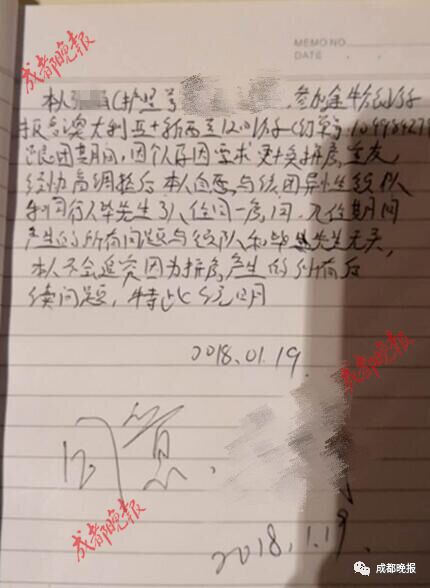 成都晚报
MEMO NO.
DATE
本人 (护照号 参加途牛旅游
报名澳大利亚+新西兰12日游(订单号:
跟团期间,因个人原因要求更换拼房室友,
经协商调整后本人自愿与该团异性
和同行人毕先生 入住同一房间,入住期间
产生的所有问题与领队和毕 先生无关,
本人不会追究因为拼房产生的所有后
续问题,特此说明
2018.01.19.
成都晚报
同意.
成都晚报
2018.1.19.
成都晚报